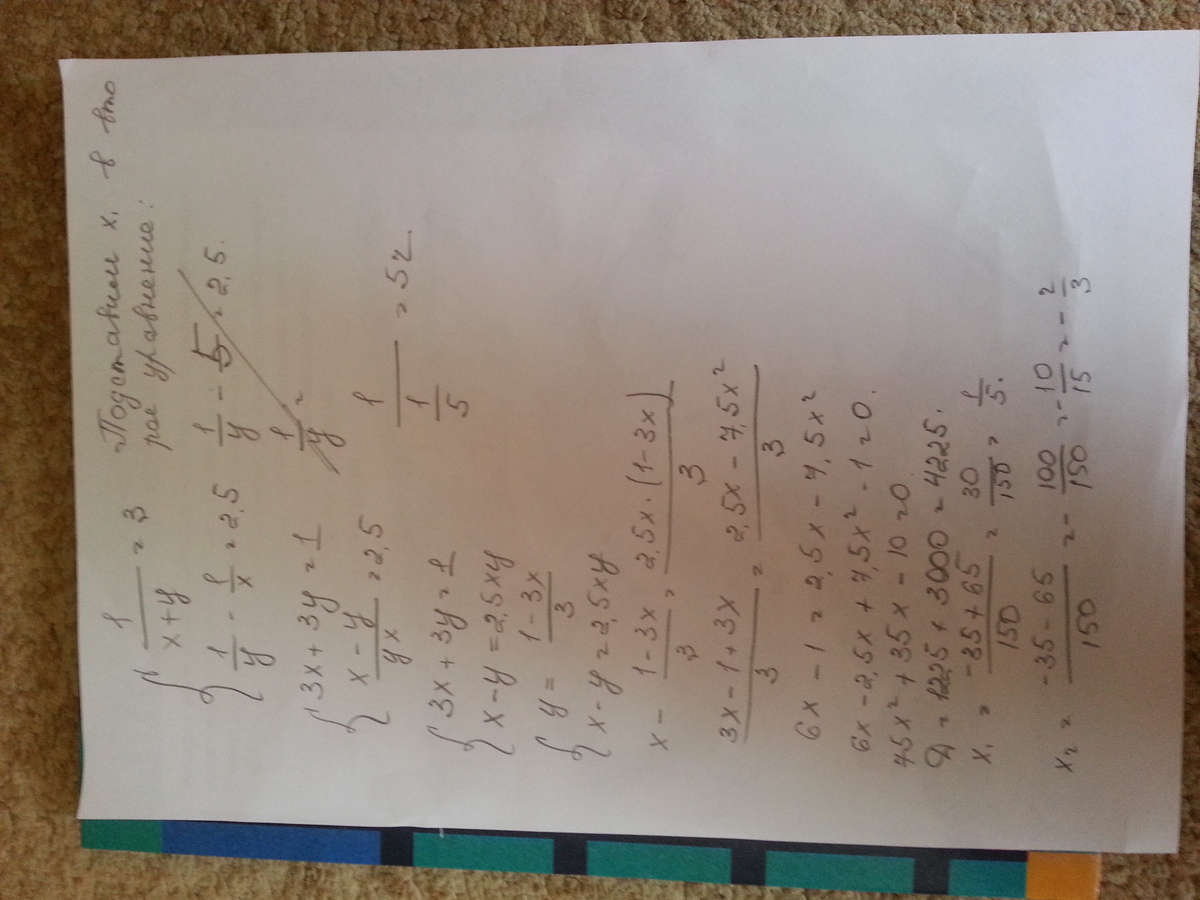 { 1/(x+y) = 3
{ 1/y - 1/x = 2,5
{ 3x + 3y = 1
{ (x - y)/(yx) = 2,5
{ 3x + 3y = 1
{ x - y = 2,5xy
{ y = (1 - 3x)/3
{ x - y = 2,5xy
x - (1 - 3x)/3 = (2,5x · (1 - 3x))/3
(3x - 1 + 3x)/3 = (2,5x - 7,5x²)/3
6x - 1 = 2,5x - 7,5x²
6x - 2,5x + 7,5x² - 1 = 0.
75x² + 35x - 10 = 0
D = 1225 + 3000 = 4225.
x₁ = (-35 + 65)/150 = 30/150 = 1/5.
x₂ = (-35 - 65)/150 = - 100/150 = - 10/15 = - 2/3
Подставим x₁ в вто
рое уравнение:
1/y - 5 = 2,5.
1/y =
1/(1/5) = 5